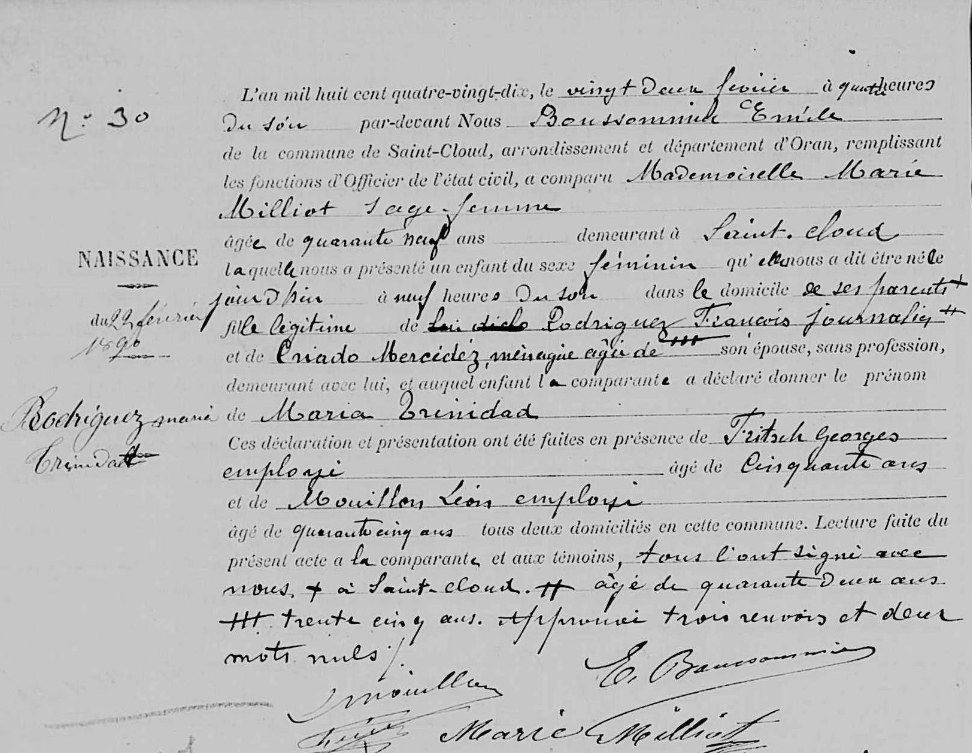 N.° 30
L'an mil huit cent quatre-vingt-dix, le vingt deux février à quatre heures
du soir par-devant Nous Boussommier Emile
de la commune de Saint-Cloud, arrondissement et département d'Oran, remplissant
les fonctions d'Officier de l'état civil, a comparu Mademoiselle Marie
Milliot Sage-femme
âgée de quarante neuf ans demeurant à Saint-Cloud
NAISSANCE
laquelle nous a présenté un enfant du sexe féminin qu'elle nous a dit être née le
jour d'hier à neuf heures du soir dans le domicile de ses parents +
du 22 février
1890
fille légitime de Rodriguez François journalier ++
et de Criado Mercédéz, ménagère âgée de +++ son épouse, sans profession,
demeurant avec lui, et auquel enfant la comparante a déclaré donner le prénom
Rodriguez maria
Trinidad
de Maria Trinidad
Ces déclaration et présentation ont été faites en présence de Fritsch Georges
employé âgé de Cinquante ans
et de Mouillon Léon employé
âgé de quarante cinq ans tous deux domiciliés en cette commune. Lecture faite du
présent acte a la comparante et aux témoins, tous l'ont signé avec
nous. + à Saint-Cloud. ++ âgé de quarante deux ans
+++ trente cinq ans. Approuvé trois renvois et deux
mots nuls
Mouillon E. Boussommier
Marie Milliot